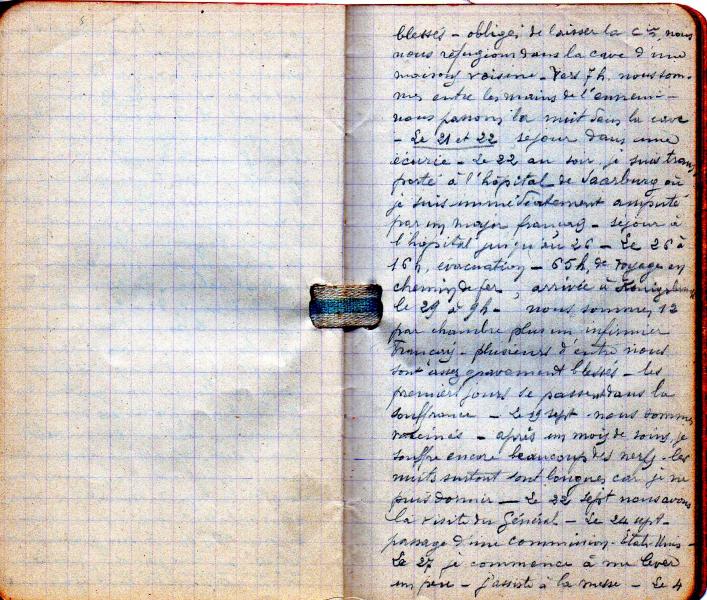 blessés - obligés de laisser la Cie nous
nous réfugions dans la cave d'une
maison voisine - Vers 7h. nous som-
mes entre les mains de l'ennemi -
nous passons la nuit dans la cave
- Le 21 et 22 séjour dans une
écurie - Le 22 au soir, je suis trans
porté à l'hôpital de Saarburg où
je suis immédiatement amputé
par un major français - séjour à
l'hôpital jusqu'au 26 - Le 26 à
16h, évacuation - 65h, de voyage en
chemin de fer, arrivée à
le 29 à 9h - nous sommes 12
par chambre plus un infirmier
Français - plusieurs d'entre nous
sont assez gravement blessés - les
premiers jours se passent dans la
souffrance - Le 19 sept - nous sommes
vaccinés - après un mois de soins, je
souffre encore beaucoup des nerfs - les
nuits surtout sont longues car je ne
puis dormir - Le 22 sept nous avons
la visite du Général - Le 24 sept -
passage d'une commission - États-Unis -
Le 27 je commence à me lever
un peu - j'assiste à la messe - Le 4